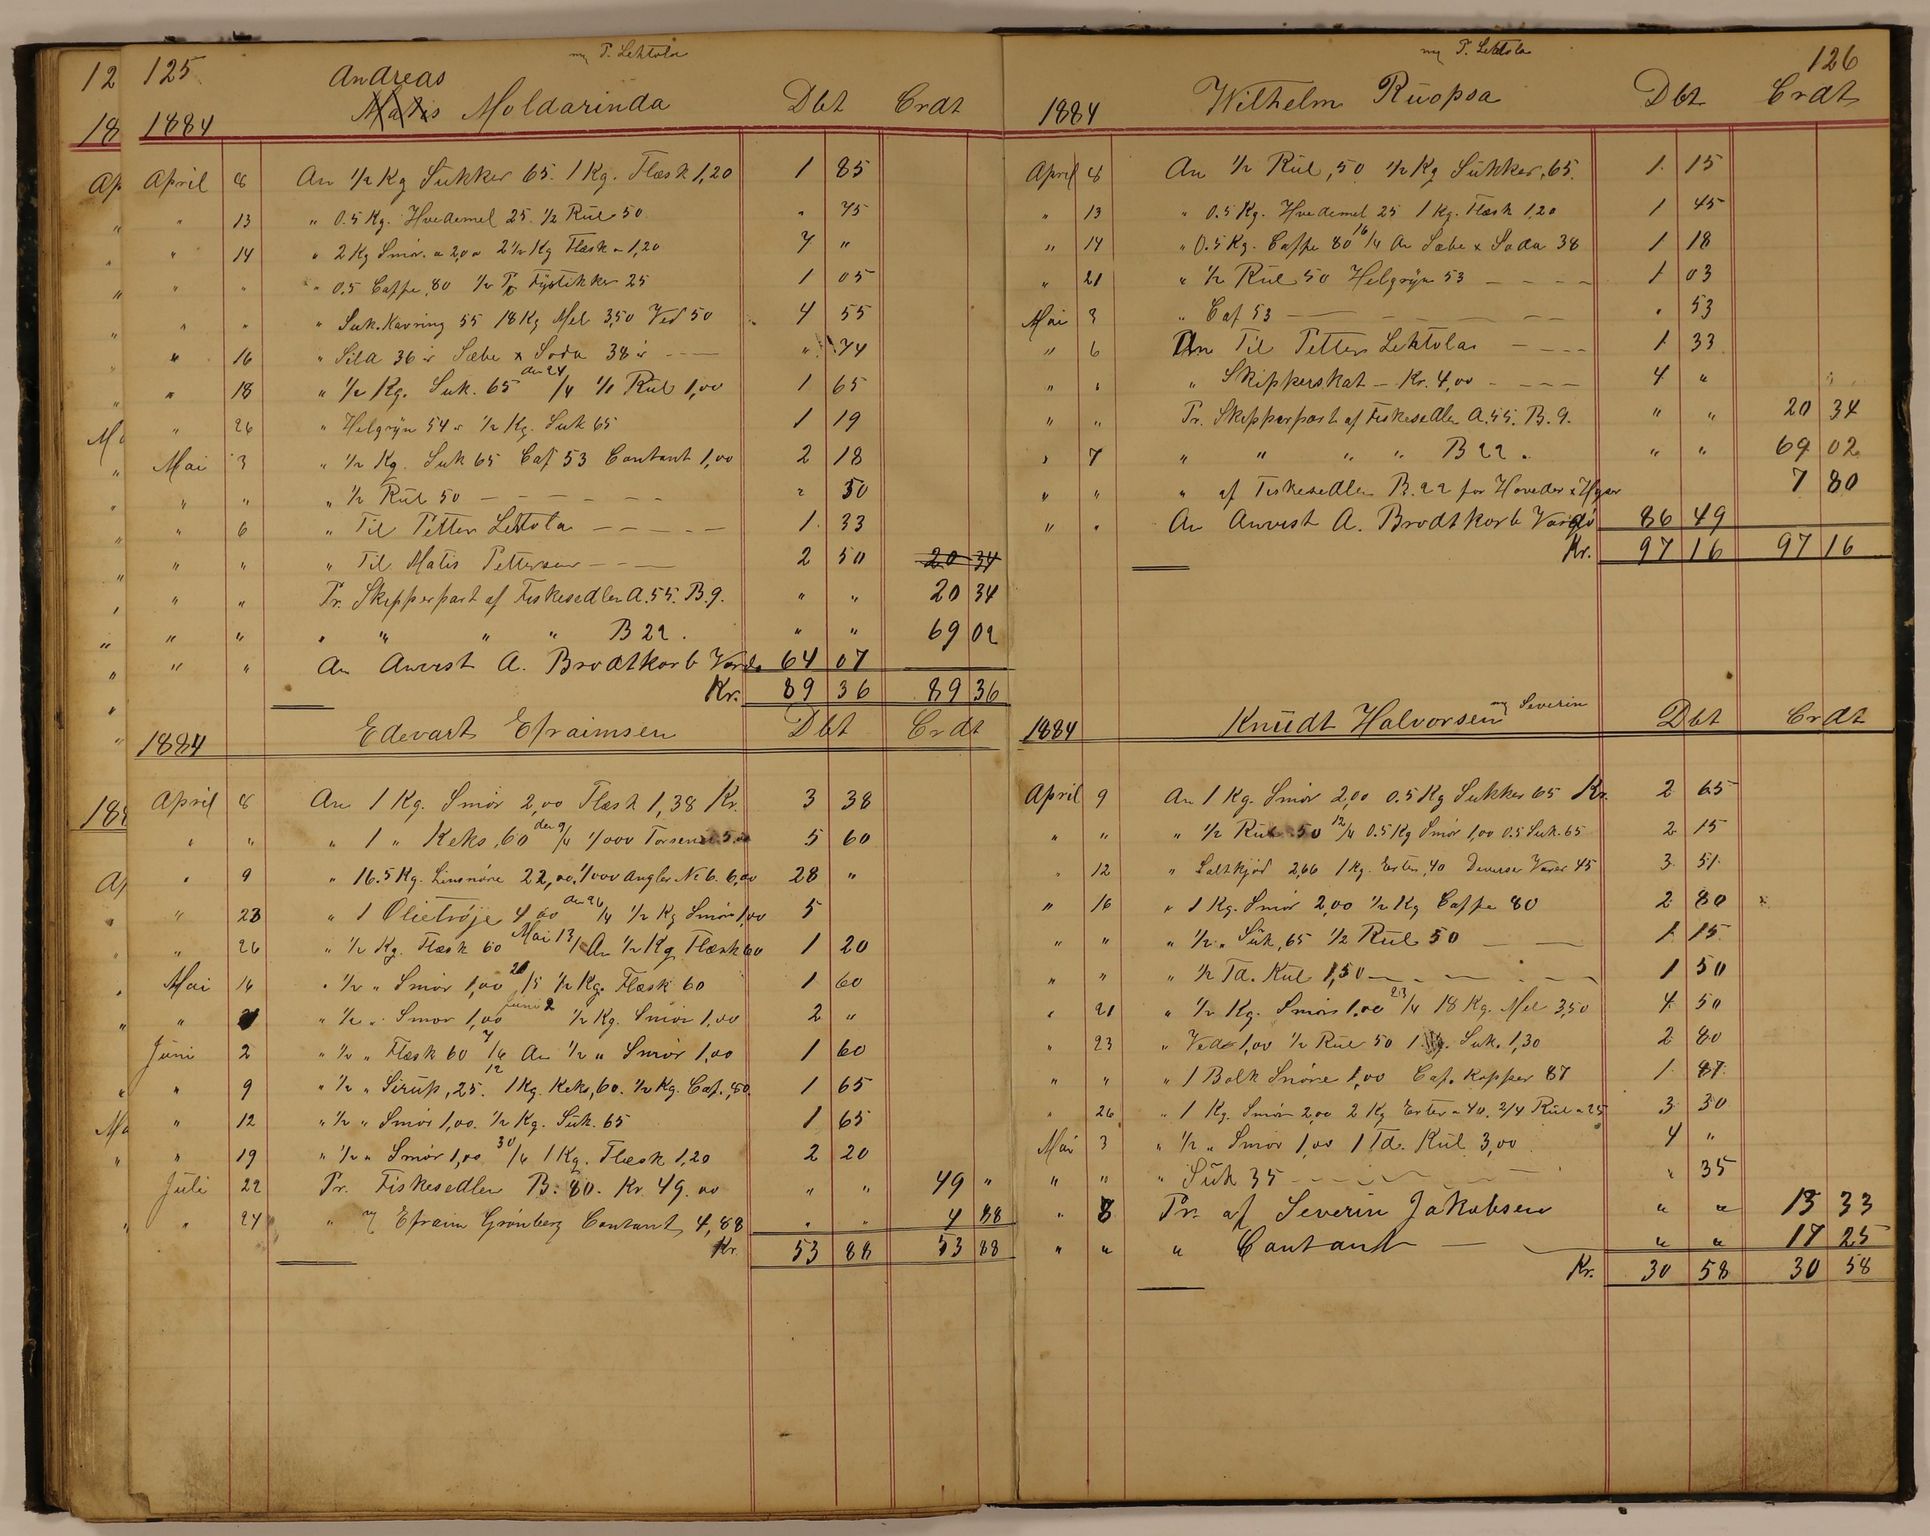 12
18
Ap
Ma
188
Ap
Ma
125
P. Lehtola
Andreas
Matis Moldarinda Dbt Crdt
1884
April 8 An 1/2 Kg Sukker 65. 1 Kg. Flæsk 1,20 1 85
" 13 " 0.5 Kg. Hvedemel 25. 1/2 Kul 50 " 75
" 14 " 2 Kg Smør. a 2,00 2 1/2 Kg Flæsk a 1,20 7 "
" " " 0.5 Caffe ,80 1/2 Fyrstikker 25 1 05
" " " Suk.Kavring 55 18 Kg Mel 3,50 Ved 50 4 55
" 16 " Sild 36 Sæbe & Soda 38 " 74
" 18 " 1/2 Kg. Suk. 65 den 24/4 1/1 Kul 1,00 1 65
" 26 " Helgryn 54 1/2 Kg. Suk 65 1 19
Mai 3 " 1/2 Kg. Suk 65 Caf 53 Contant 1,00 2 18
" " " 1/2 Kul 50 " 50
" 6 " Til Petter Lehtola 1 33
" " " Til Matis Pettersen 2 50 20 34
" " Pr. Skipperpart af Fiskesedler A.55. B.9. " " 20 34
" " " " " " B 22. " " 69 02
" " An Anvist A. Brodtkorb Vardø 64 07
Kr. 89 36 89 36
1884 Edevart Efraimsen Dbt Crdt
April 8 An 1 Kg. Smør 2,00 Flæsk 1,38 Kr. 3 38
" " " 1 " Keks ,60 den 9/4 1/000 5 60
" 9 " 16.5 Kg. Linsnøre 22,00. 1/000 Angler No 6. 6,00 28 "
" 23 " 1 Olietrøje 4,00 den 26/4 1/2 Kg Smør 1,00 5
" 26 " 1/2 Kg. Flæsk 60 Mai 13/ An 1/2 Kg Flæsk 60 1 20
Mai 16 " 1/2 " Smør 1,00 20/5 1/2 Kg. Flæsk 60 1 60
" " 1/2 " Smør 1,00 Juni 2 1/2 Kg. Smør 1,00 2 "
Juni 2 " 1/2 " Flæsk 60 7/6 An 1/2 " Smør 1,00 1 60
" 9 " 1/2 " Sirup ,25. 12 1 Kg. Keks ,60. 1/2 Kg. Caf. ,80. 1 65
" 12 " 1/2 " Smør 1,00. 1/2 Kg. Suk. 65 1 65
" 19 " 1/2 " Smør 1,00 30/6 1 Kg. Flæsk 1,20 2 20
Juli 22 Pr. Fiskesedler B. 80. Kr. 49.00 " " 49 "
" 24 " Efraim Grønberg Contant 4,88 " " 4 88
Kr. 53 88 53 88
P. Lehtola
126
1884 Wilhelm Ruopsa Dbt Crdt
April 8 An 1/2 Kul ,50 1/2 Kg Sukker ,65. 1 15
" 13 " 0.5 Kg. Hvedemel 25 1 Kg. Flæsk 1,20 1 45
" 14 " 0.5 Kg. Caffe 80 16/4 An Sæbe & Soda 38 1 18
" 21 " 1/2 Kul 50 Helgryn 53 1 03
Mai 3 " Caf 53 " 53
" 6 An Til Petter Lehtola 1 33
" " " Skipperskat - Kr. 4,00 4 "
" " Pr. Skipperpart af Fiskesedler A.55. B.9. " " 20 34
" 7 " " " " B 22. " " 69 02
" " " af Fiskesedler B.22 for Hoveder & 7 80
" " An Anvist A. Brodtkorb Vardø 86 49
Kr. 97 16 97 16
1884 Knudt Halvorsen Severin Dbt Crdt
April 9 An 1 Kg. Smør 2,00 0.5 Kg Sukker 65 Kr. 2 65
" " " 1/2 Kul 50 12/4 0.5 Kg Smør 1,00 0.5 Suk. 65 2 15
" 12 " Saltkjød 2,66 1 Kg. Erter ,40 Diverse Varer 45 3 51
" 16 " 1 Kg. Smør 2,00 1/2 Kg Caffe 80 2 80
" " " 1/2 " Suk, 65 1/2 Kul 50 1 15
" " " 1/2 Td. Kul 1,50 1 50
" 21 " 1/2 Kg. Smør 1,00 23/4 18 Kg. Mel 3,50 4 50
" 23 " Ved 1,00 1/2 Kul 50 1 Kg. Suk. 1,30 2 80
" " " 1 Bolk Snøre 1,00 Caf. Kopper 87 1 87
" 26 " 1 Kg. Smør 2,00 2 Kg Erter a 40. 2/4 Kul a 25 3 30
Mai 3 " 1/2 " Smør 1,00 1 Td. Kul 3,00 4 "
" " " Suk 35 " 35
" 8 Pr. af Severin Jakobsen " " 13 33
" " " Contant " " 17 25
Kr. 30 58 30 58